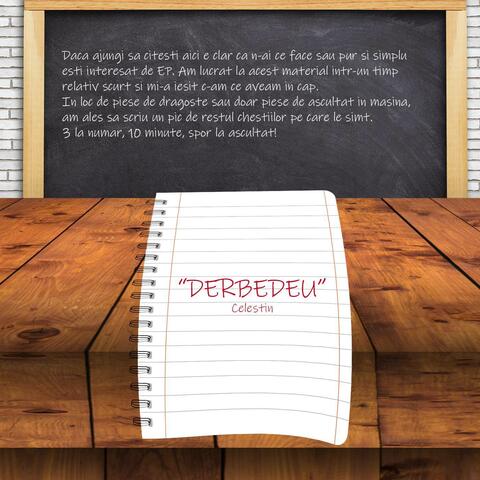 Daca ajungi sa citesti aici e clar ca n-ai ce face sau pur si simplu
esti interesat de EP. Am lucrat la acest material intr-un timp
relativ scurt si mi-a iesit c-am ce aveam in cap.
In loc de piese de dragoste sau doar piese de ascultat in masina,
am ales sa scriu un pic de restul chestiilor pe care le simt.
3 la numar, 10 minute, spor la ascultat!
"DERBEDEU"
Celestin